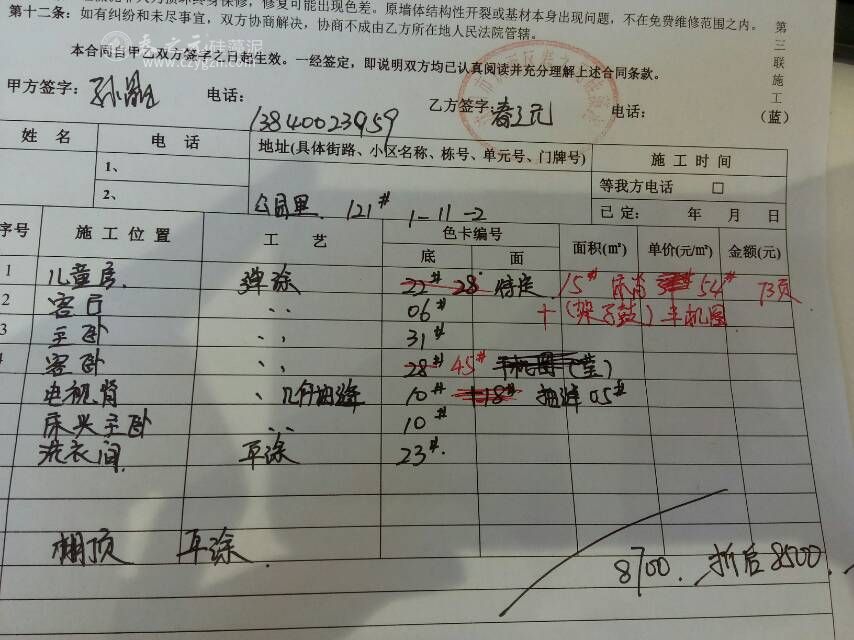 修复可能出现色差。原墙体结构性开裂或基材本身出现问题，不在免费维修范围之内。
第十二条：如有纠纷和未尽事宜，双方协商解决，协商不成由乙方所在地人民法院管辖。
春之元硅藻泥
www.czygzn.com
本合同自甲乙双方签字之日起生效。一经签定，即说明双方均已认真阅读并充分理解上述合同条款。
第三联施工（蓝）
甲方签字： 电话： 13840023959 乙方签字：春之元 电话：
姓名 电话 地址(具体街路、小区名称、栋号、单元号、门牌号) 施工时间
1、 等我方电话 □
2、 公园里 121# 1-11-2 已定： 年 月 日
序号 施工位置 工艺 色卡编号 面积(m²) 单价(元/m²) 金额(元)
底 面
1 儿童房 弹涂 22# 28# 特定 15# 54# 73页
2 客厅 〃 06# +(架子鼓)
3 主卧 〃 31#
4 客卧 〃 28# 45#
电视背 〃 10# 18# 05#
床头主卧 〃 10#
洗衣间 平涂 23#
棚顶 平涂
8700. 折后8500